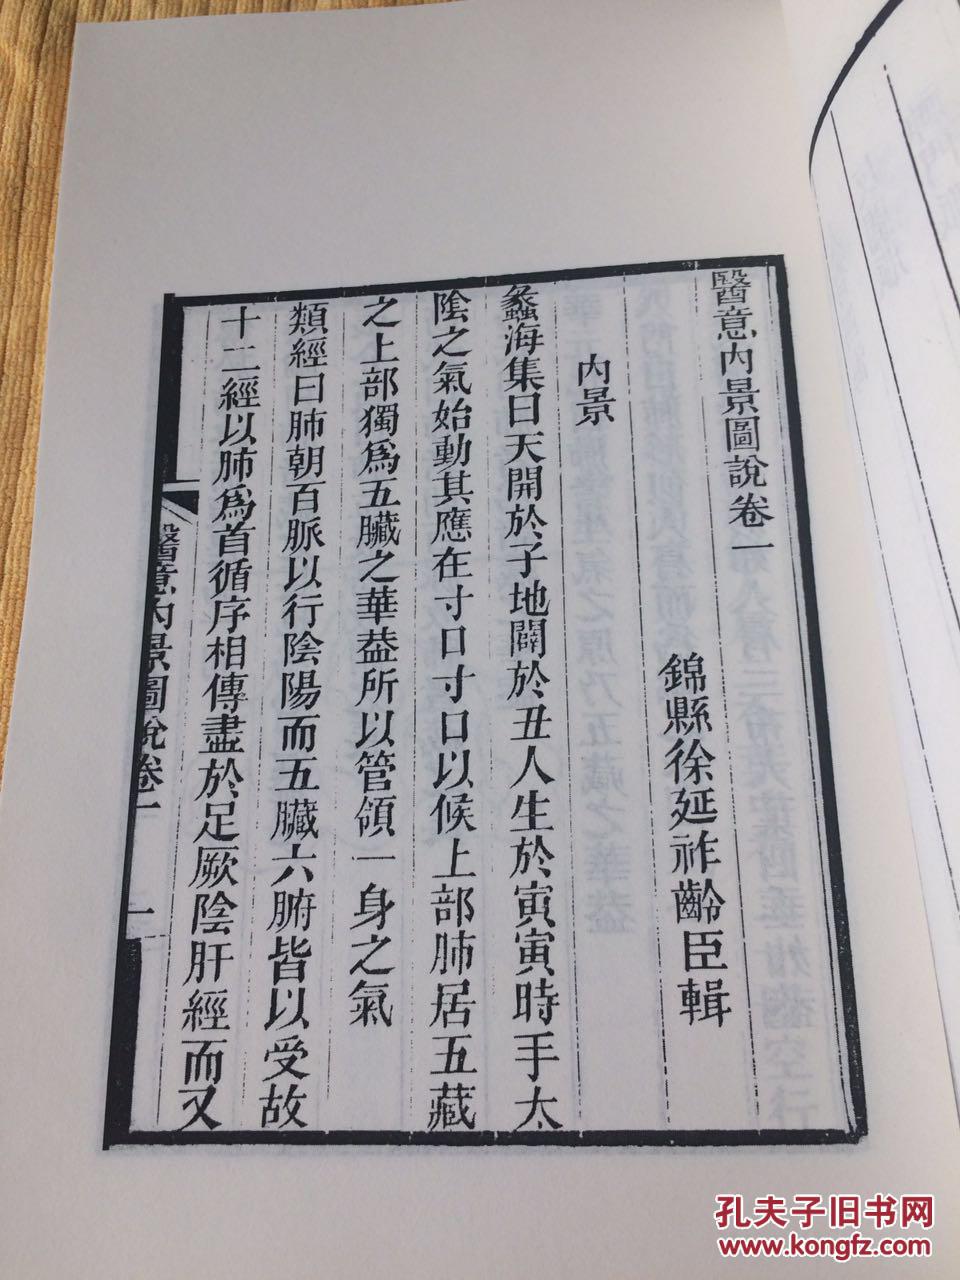 醫意内景圖說卷一
錦縣徐延祚齡臣輯
内景
蠡海集曰天開於子地闢於丑人生於寅寅時手太
陰之氣始動其應在寸口寸口以候上部肺居五藏
之上部獨爲五臟之華葢所以管領一身之氣
類經曰肺朝百脈以行陰陽而五臟六腑皆以受故
十二經以肺爲首循序相傳盡於足厥陰肝經而又
醫意内景圖說卷一
一
孔夫子旧书网
www.kongfz.com